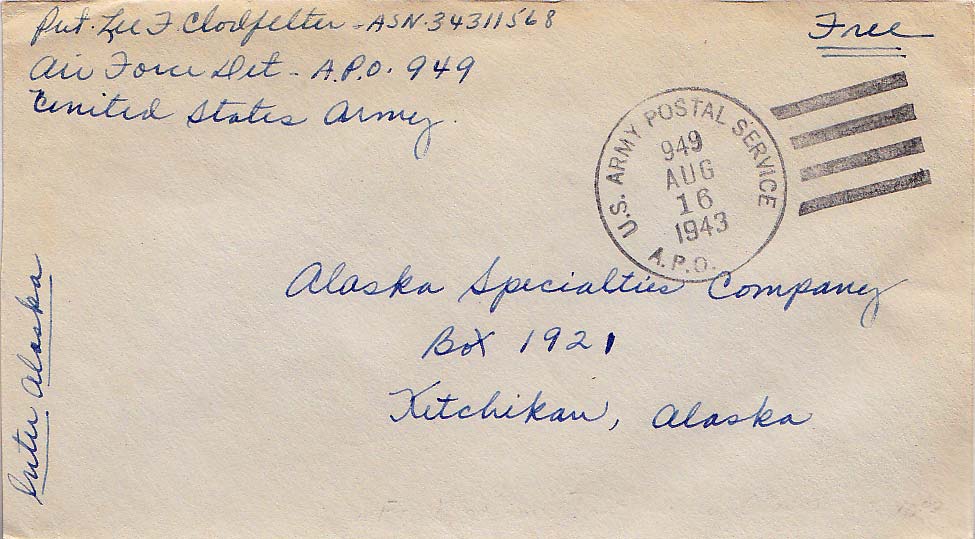 Pvt. Lee F. Clodfelter - ASN. 34311568
Air Force Det - A.P.O. 949
United States Army.
Free
U.S. ARMY POSTAL SERVICE
949
AUG
16
1943
A.P.O.
Alaska Specialties Company
Box 1921
Ketchikan, Alaska
Inter Alaska